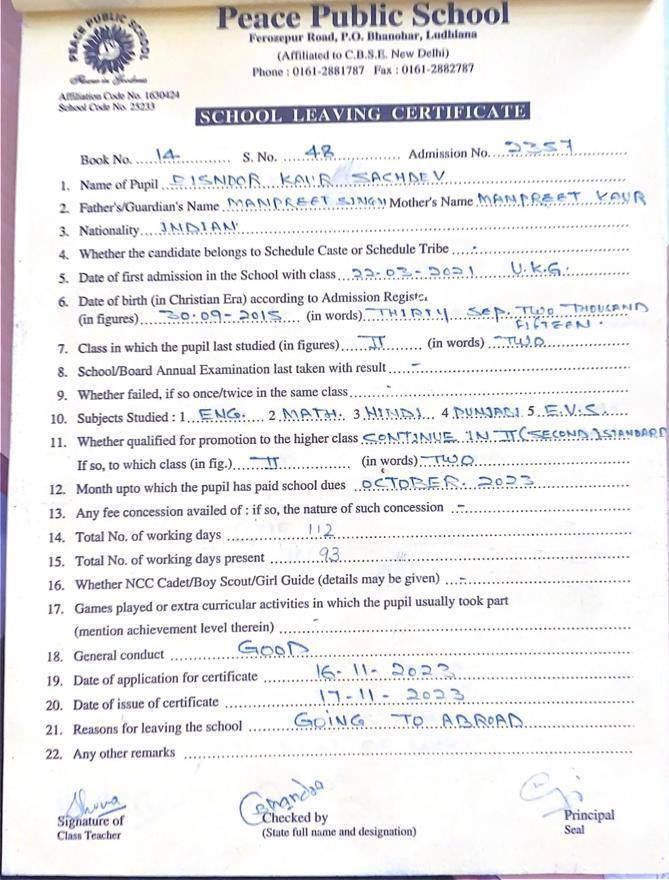 PEACE PUBLIC SCHOOL
Peace Public School
Ferozepur Road, P.O. Bhanohar, Ludhiana
(Affiliated to C.B.S.E. New Delhi)
Phone : 0161-2881787 Fax : 0161-2882787
Affiliation Code No. 1630424
School Code No. 25233
SCHOOL LEAVING CERTIFICATE
Book No. 14 S. No. 48 Admission No. 2357
1. Name of Pupil KAUR SACHDEV
2. Father's/Guardian's Name MANPREET SINGH Mother's Name MANPREET KAUR
3. Nationality INDIAN
4. Whether the candidate belongs to Schedule Caste or Schedule Tribe -
5. Date of first admission in the School with class 22-03-2021 U.K.G.
6. Date of birth (in Christian Era) according to Admission Register
(in figures) 30-09-2015 (in words) THIRTY SEP. TWO THOUSAND
FIFTEEN.
7. Class in which the pupil last studied (in figures) II (in words) TWO
8. School/Board Annual Examination last taken with result -
9. Whether failed, if so once/twice in the same class -
10. Subjects Studied : 1. ENG. 2. MATH. 3 HINDI 4 PUNJABI 5. E.V.S.
11. Whether qualified for promotion to the higher class CONTINUE IN II (SECOND) STANDARD
If so, to which class (in fig.) II (in words) TWO
12. Month upto which the pupil has paid school dues OCTOBER. 2023
13. Any fee concession availed of : if so, the nature of such concession -
14. Total No. of working days 112
15. Total No. of working days present 93
16. Whether NCC Cadet/Boy Scout/Girl Guide (details may be given) -
17. Games played or extra curricular activities in which the pupil usually took part
(mention achievement level therein) -
18. General conduct GOOD
19. Date of application for certificate 16-11-2023
20. Date of issue of certificate 17-11-2023
21. Reasons for leaving the school GOING TO ABROAD
22. Any other remarks
Signature of
Class Teacher
Checked by
(State full name and designation)
Principal
Seal